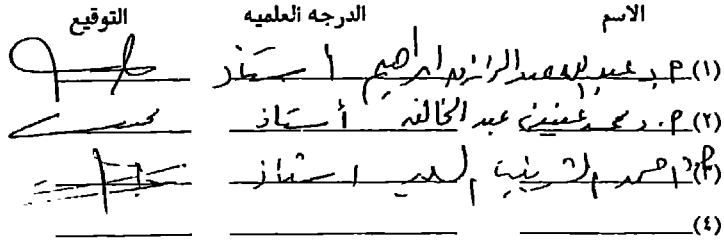 الاسم الدرجه العلميه التوقيع
(١) أ.د عبدالله عبدالرازق ابراهيم أستاذ
(٢) أ.د محمد عفيفى عبد الخالق أستاذ
(٣) احمد الشربينى السيد استاذ
(٤)